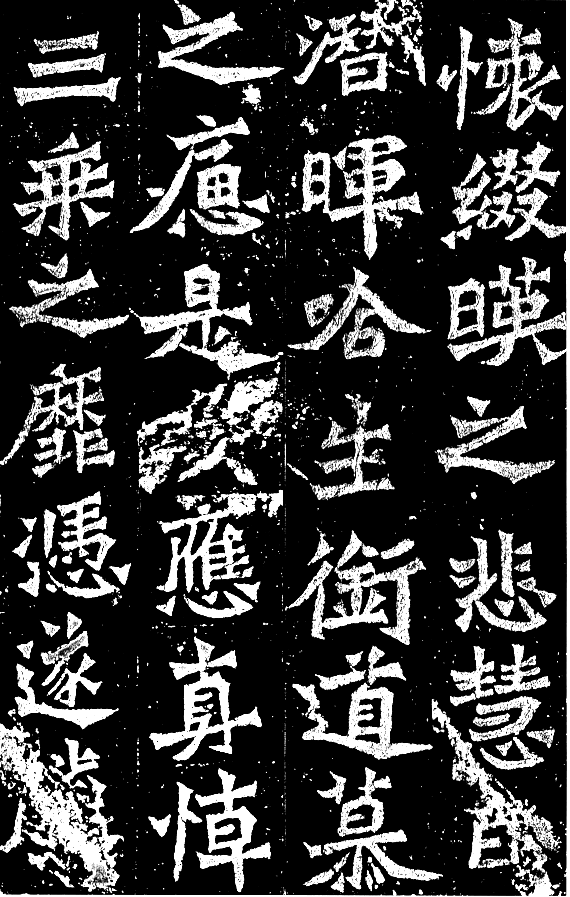 懷綴暎之悲慧日
潛暉唅生銜道慕
之痛是以應真悼
三乘之靡憑遂